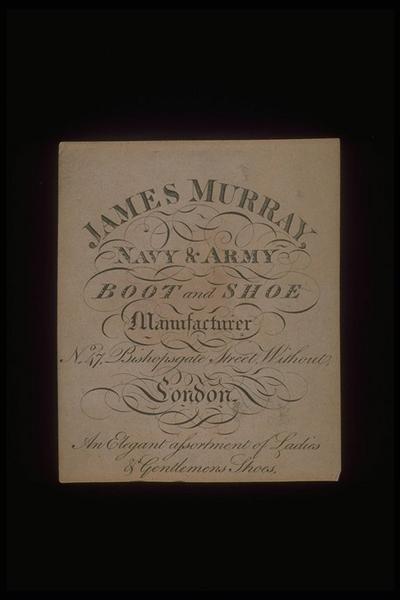 JAMES MURRAY,
NAVY & ARMY
BOOT and SHOE
Manufacturer
No. 47, Bishopsgate Street, Without,
London.
An Elegant aſsortment of Ladies
& Gentlemens Shoes.